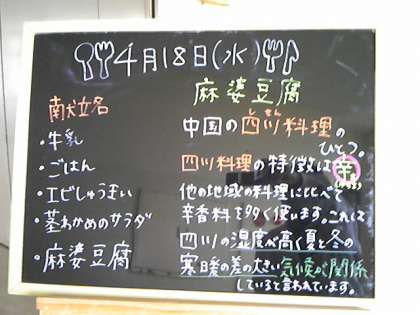 4月18日(水)
献立名
・牛乳
・ごはん
・エビしゅうまい
・茎わかめのサラダ
・麻婆豆腐
麻婆豆腐
中国の四川料理の
ひとつ。
四川料理の特徴は辛
他の地域の料理にくらべて
辛香料を多く使います。これは
四川の湿度が高く夏と冬の
寒暖の差の大きい気候が関係
していると言われています。